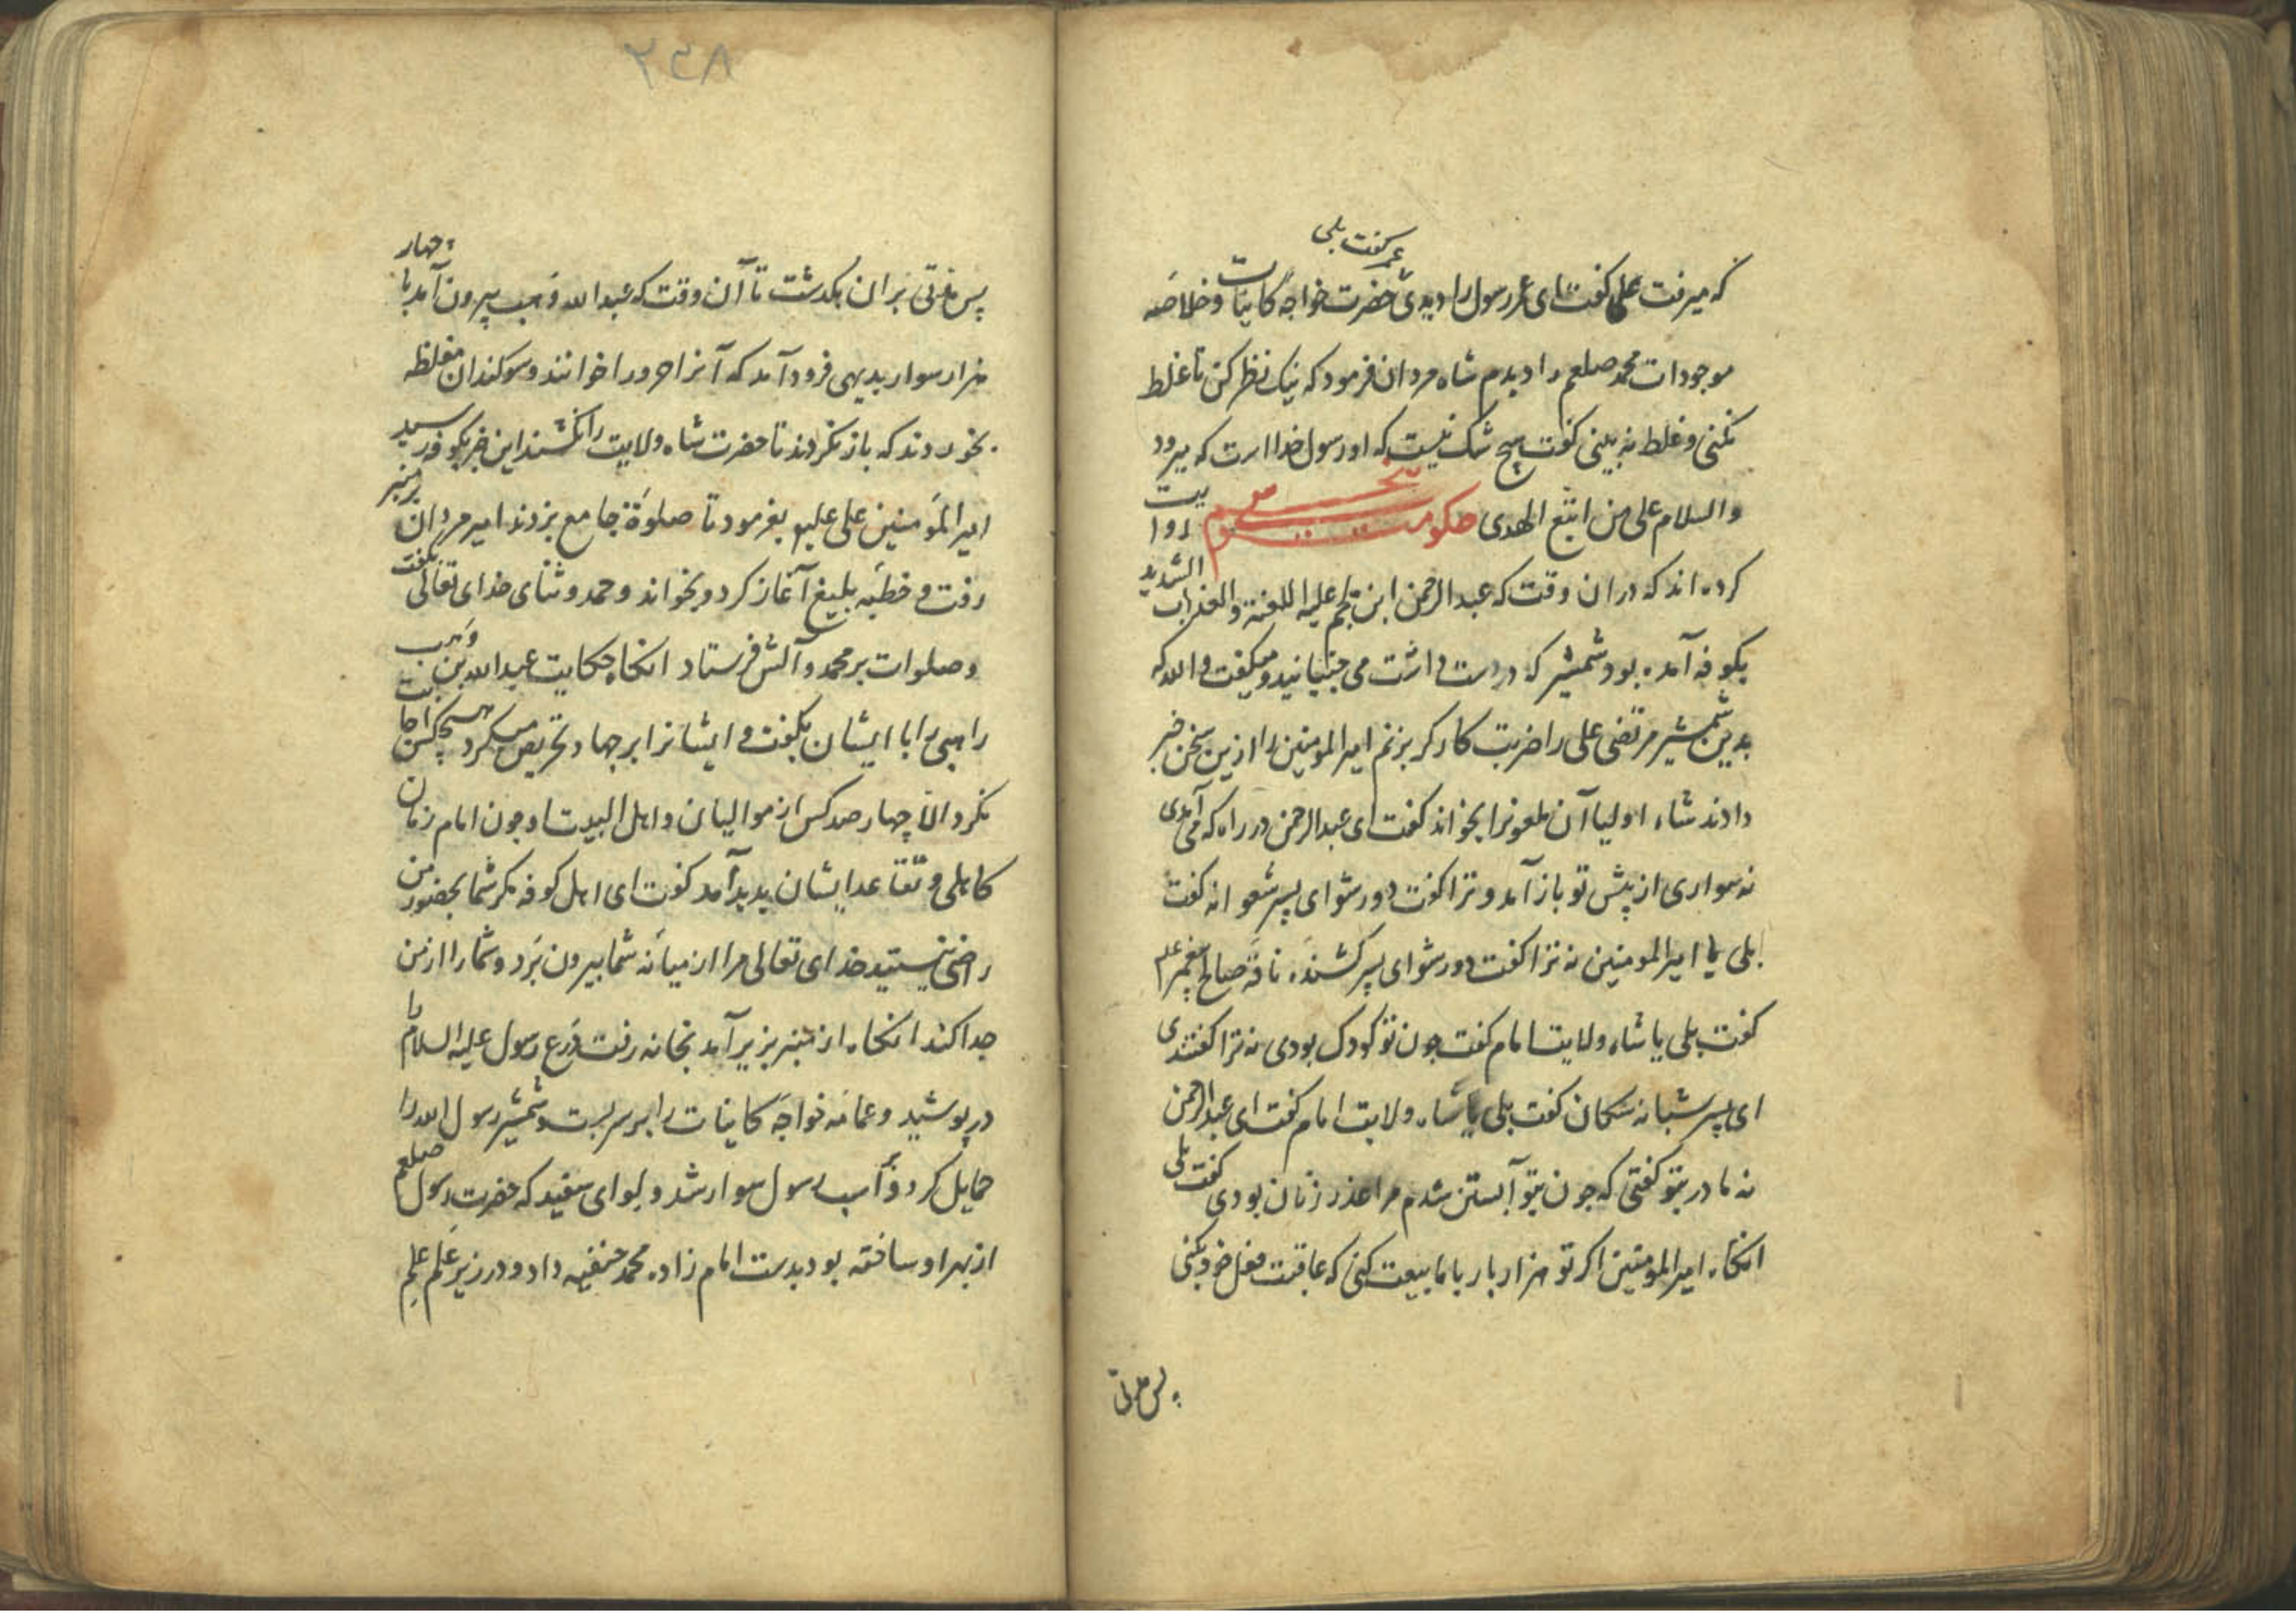 عمر گفت بلی
که میرفت علی گفت ای عمر رسول را دیدی حضرت خواجه کاینات و خلاصه
موجودات محمد صلعم را دیدم شاه مردان فرمود که نیک نظر کن تا غلط
نکنی و غلط نه بینی گفت هیچ شک نیست که او رسول خدا است که میرود
والسلام علی من اتبع الهدی حکومت پنجم روایت
کرده اند که در ان وقت که عبدالرحمن ابن ملجم علیه اللعنة والعذاب الشدید
بکوفه آمده بود شمشیر که در دست داشت می جنبانید و میگفت والله که
بدین شمشیر مرتضی علی را ضربت کارگر بزنم امیرالمومنین را ازین سخن خبر
دادند شاه اولیا آن ملعونرا بخواند گفت ای عبدالرحمن در راه که می آمدی
نه سواری از پیش تو باز آمد و ترا گفت دور شو ای پسر شعوانه گفت
بلی یا امیرالمومنین نه ترا گفت دور شو ای پسر کشنده ناقه صالح پیغمبر علم
گفت بلی یا شاه ولایت امام گفت چون تو کودک بودی نه ترا گفتندی
ای پسر شبانه سکان گفت بلی یا شاه ولایت امام گفت ای عبدالرحمن
نه مادر بتو گفتی که چون بتو آبستن شدم مرا عذر زنان بودی گفت بلی
انگاه امیرالمومنین اگر تو هزار بار با ما بیعت کنی که عاقبت فعل خود بکنی
پس مدتی
۲۵۸
پس مدتی بران بگذشت تا آن وقت که عبدالله وهب بیرون آمد با چهار
هزار سوار بدیهی فرود آمد که آنرا حرورا خوانند و سوگندان مغلظه
بخوردند که باز نگردند تا حضرت شاه ولایت را نکشند این خبر بکوفه رسید
امیرالمؤمنین علی علیه بفرمود تا صلوة جامع بزدند امیر مردان بر منبر
رفت و خطبه بلیغ آغاز کرد و بخواند و حمد و ثنای خدای تعالی بگفت
و صلوات بر محمد و آلش فرستاد انگاه حکایت عبدالله بن وهب
راهبی را با ایشان بگفت و ایشانرا بر جهاد تحریص میکرد هیچکس اجابت
نکرد الا چهار صد کس از موالیان و اهل البیت او چون امام زمان
کاهلی و تقاعد ایشان پدید آمد گفت ای اهل کوفه مگر شما بحضور من
راضی نیستید خدای تعالی مرا از میانه شما بیرون برد و شما را از من
جدا کند انگاه از منبر بزیر آمد بخانه رفت درع رسول علیه السلام را
در پوشید و عمامه خواجه کاینات را بر سر بست و شمشیر رسول الله را
حمایل کرد و بر اسب رسول سوار شد و لوای سفید که حضرت رسول صلعم
از بهر او ساخته بود بدست امام زاده محمد حنفیه داد و در زیر علم علم